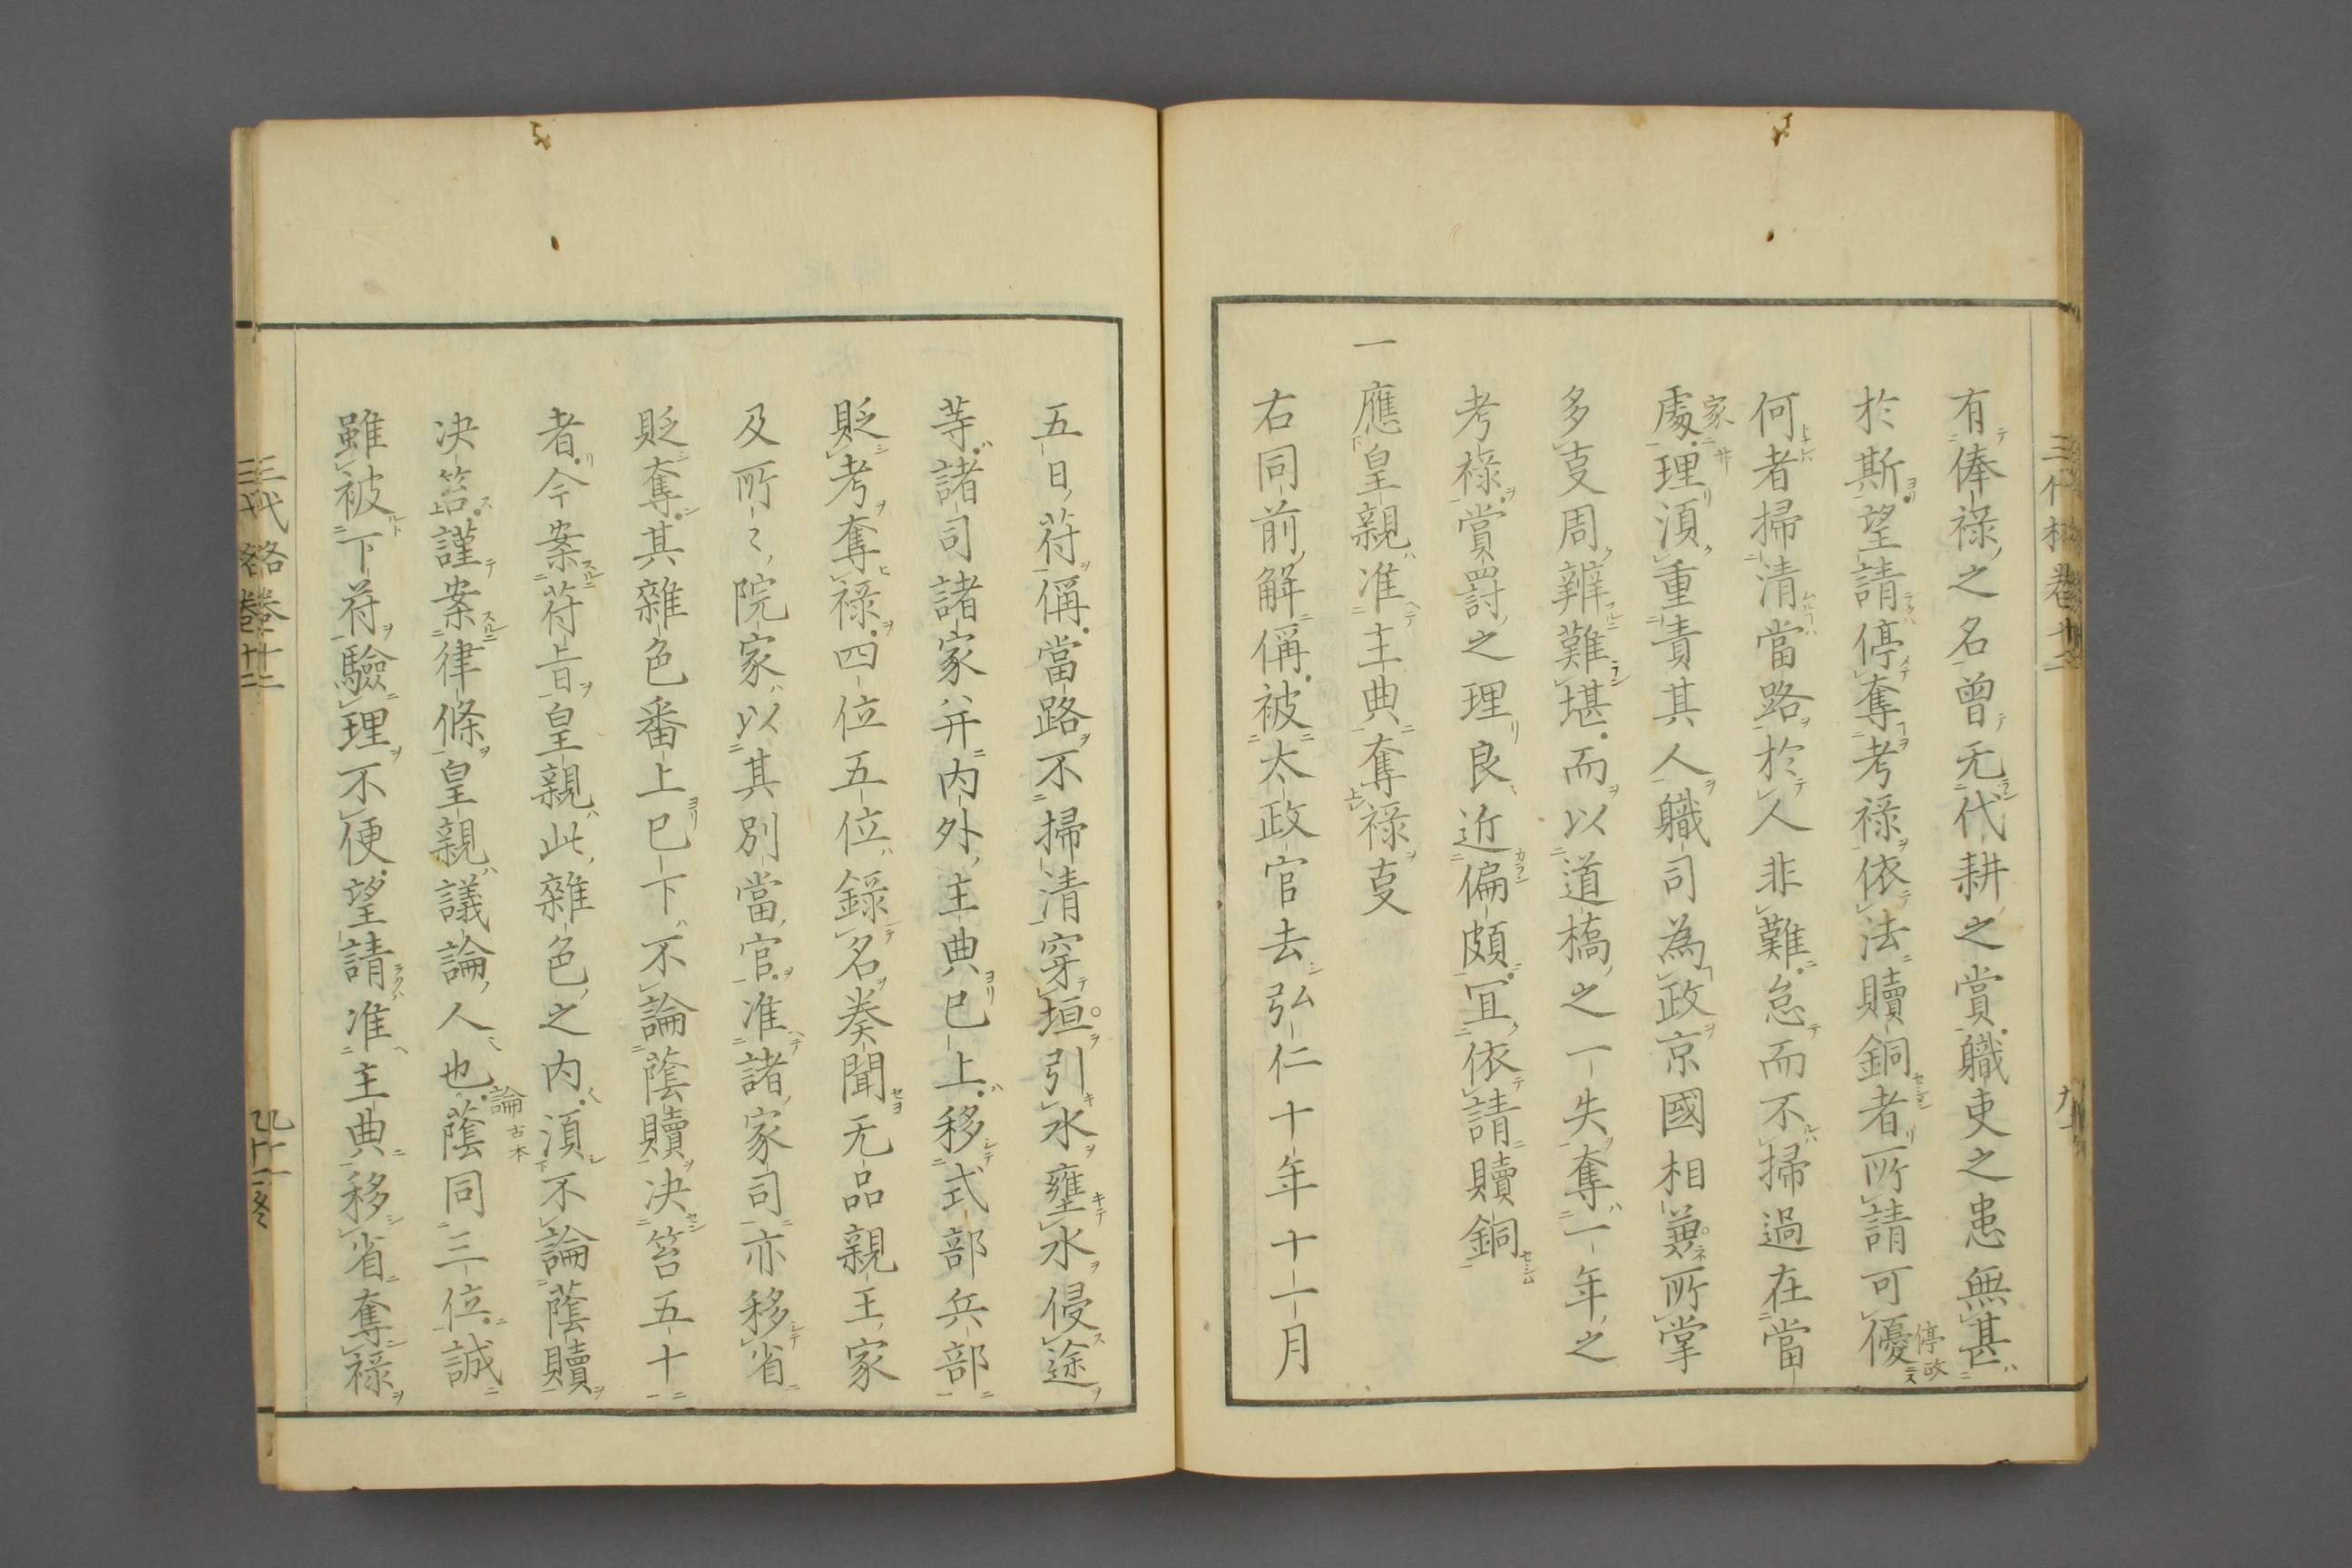 有俸祿之名曾无代耕之賞職吏之患無甚
於斯望請停奪考祿依法贖銅者所請可優
停政
何者掃清當路於人非難怠而不掃過在當
家
處理須重責其人職司為政京國相兼所掌
多㕝周辨難堪而以道橋之一失奪一年之
考祿賞罸之理良近偏頗冝依請贖銅
一應皇親准主典奪祿㕝
右同前解偁被太政官去弘仁十年十一月
五日符偁當路不掃清穿垣引水壅水侵途
等諸司諸家并内外主典已上移式部兵部
貶考奪祿四位五位錄名奏聞无品親王家
及所〻院家以其別當官准諸家司亦移省
貶奪其雜色番上已下不論蔭贖决笞五十
者今案符旨皇親此雜色之内須不論蔭贖
决笞謹案律條皇親議論人也蔭同三位誠
論古本
雖被下符驗理不便望請准主典移省奪祿
三代格卷十二